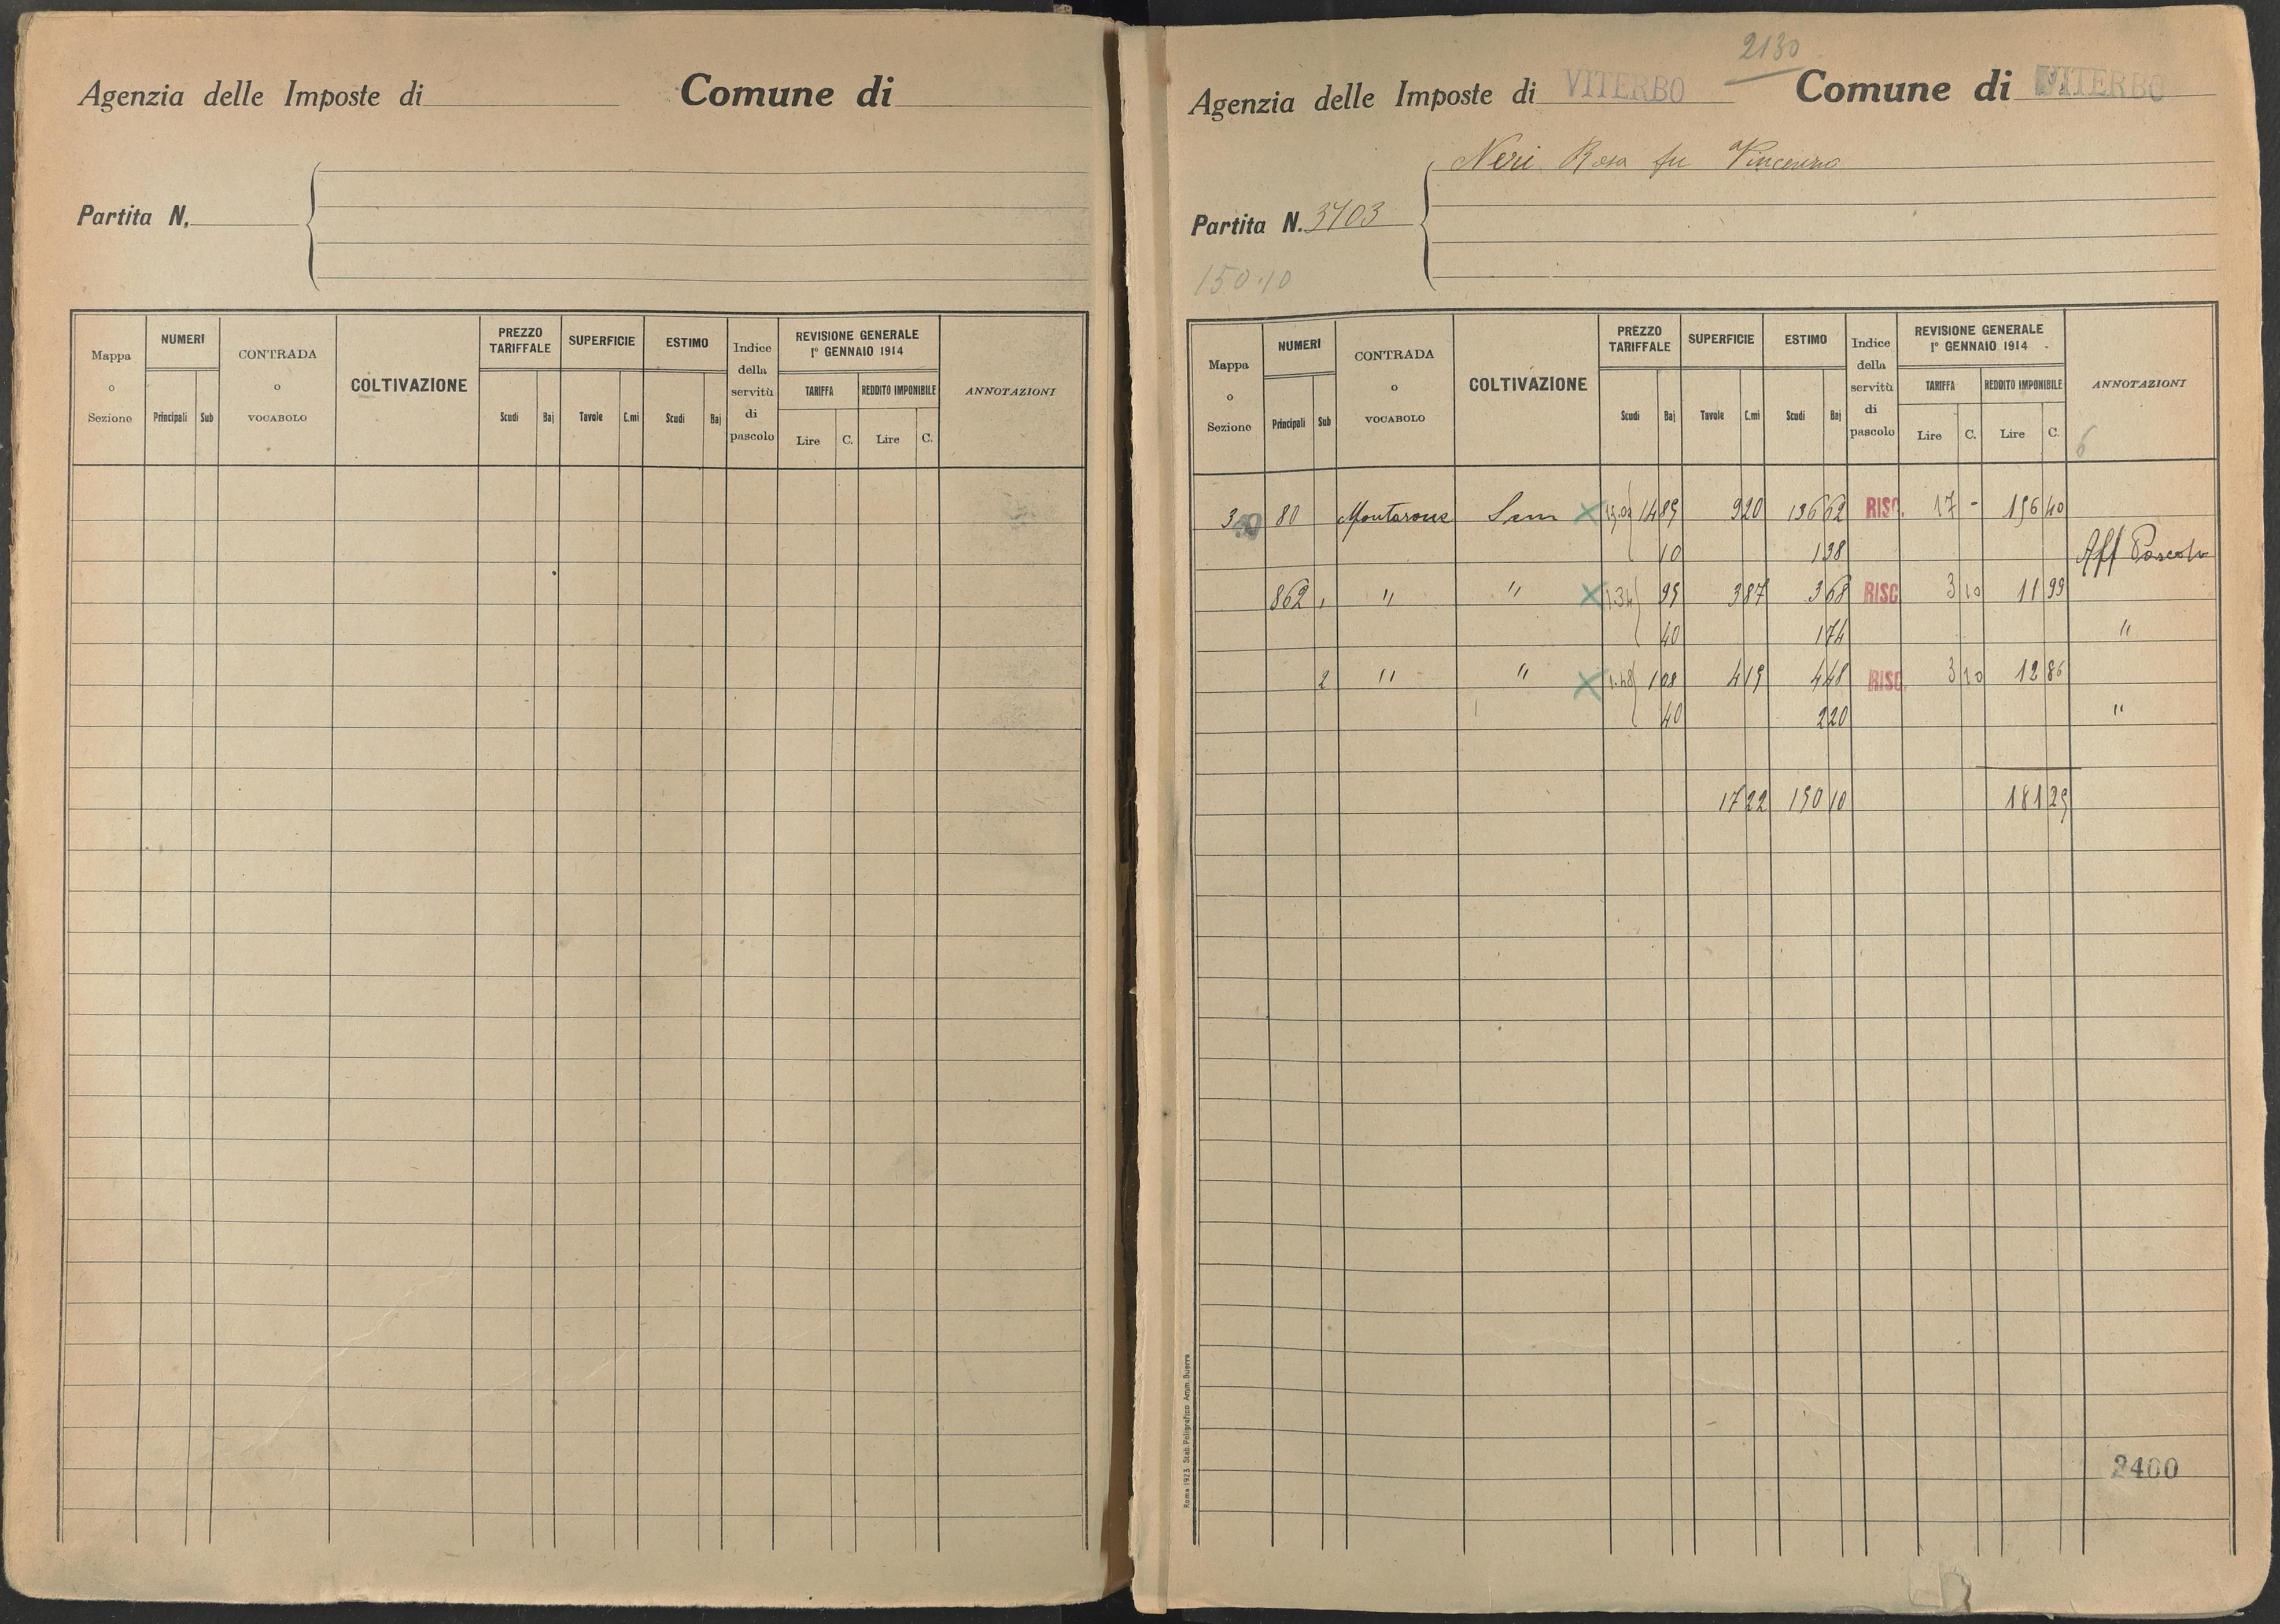 Agenzia delle Imposte di Comune di
Partita N.
Mappa o Sezione
NUMERI
Principali Sub
CONTRADA o VOCABOLO
COLTIVAZIONE
PREZZO TARIFFALE
Scudi Baj
SUPERFICIE
Tavole C.mi
ESTIMO
Scudi Baj
Indice della servitù di pascolo
REVISIONE GENERALE 1° GENNAIO 1914
TARIFFA
Lire C.
REDDITO IMPONIBILE
Lire C.
ANNOTAZIONI
2130
Agenzia delle Imposte di VITERBO Comune di VITERBO
Neri Rosa fu Vincenzo
Partita N. 3703
150.10
Mappa o Sezione
NUMERI
Principali Sub
CONTRADA o VOCABOLO
COLTIVAZIONE
PREZZO TARIFFALE
Scudi Baj
SUPERFICIE
Tavole C.mi
ESTIMO
Scudi Baj
Indice della servitù di pascolo
REVISIONE GENERALE 1° GENNAIO 1914
TARIFFA
Lire C.
REDDITO IMPONIBILE
Lire C.
ANNOTAZIONI
6
3 80 Montarone Sem 14 85 9 20 136 62 RISC. 17 - 156 40
10 1 38 Aff Pascolo
862 1 " " 1.34 95 3 87 3 68 RISC 3 10 11 99
40 1 74 "
2 " " 1.48 1 08 4 15 4 48 RISC. 3 10 12 86
40 2 20 "
17 22 150 10 181 25
2400
Roma 1923 Stab. Poligrafico Amm. Guerra